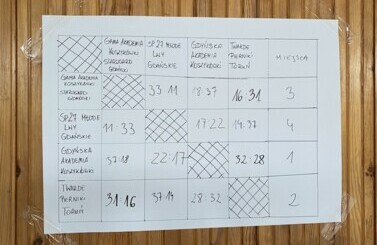 GAMA AKADEMIA
KOSZYKÓWKI
STAROGARD
GDAŃSKI
SP27 MŁODE
LWY
GDAŃSKIE
GDYŃSKA
AKADEMIA
KOSZYKÓWKI
TWARDE
PIERNIKI
TORUŃ
MIEJSCA
GAMA AKADEMIA
KOSZYKÓWKI
STAROGARD
GDAŃSKI
33:11
18:37
16:31
3
SP27 MŁODE
LWY
GDAŃSKIE
11:33
17:22
14:37
4
GDYŃSKA
AKADEMIA
KOSZYKÓWKI
37:18
22:17
32:28
1
TWARDE
PIERNIKI
TORUŃ
31:16
37:14
28:32
2